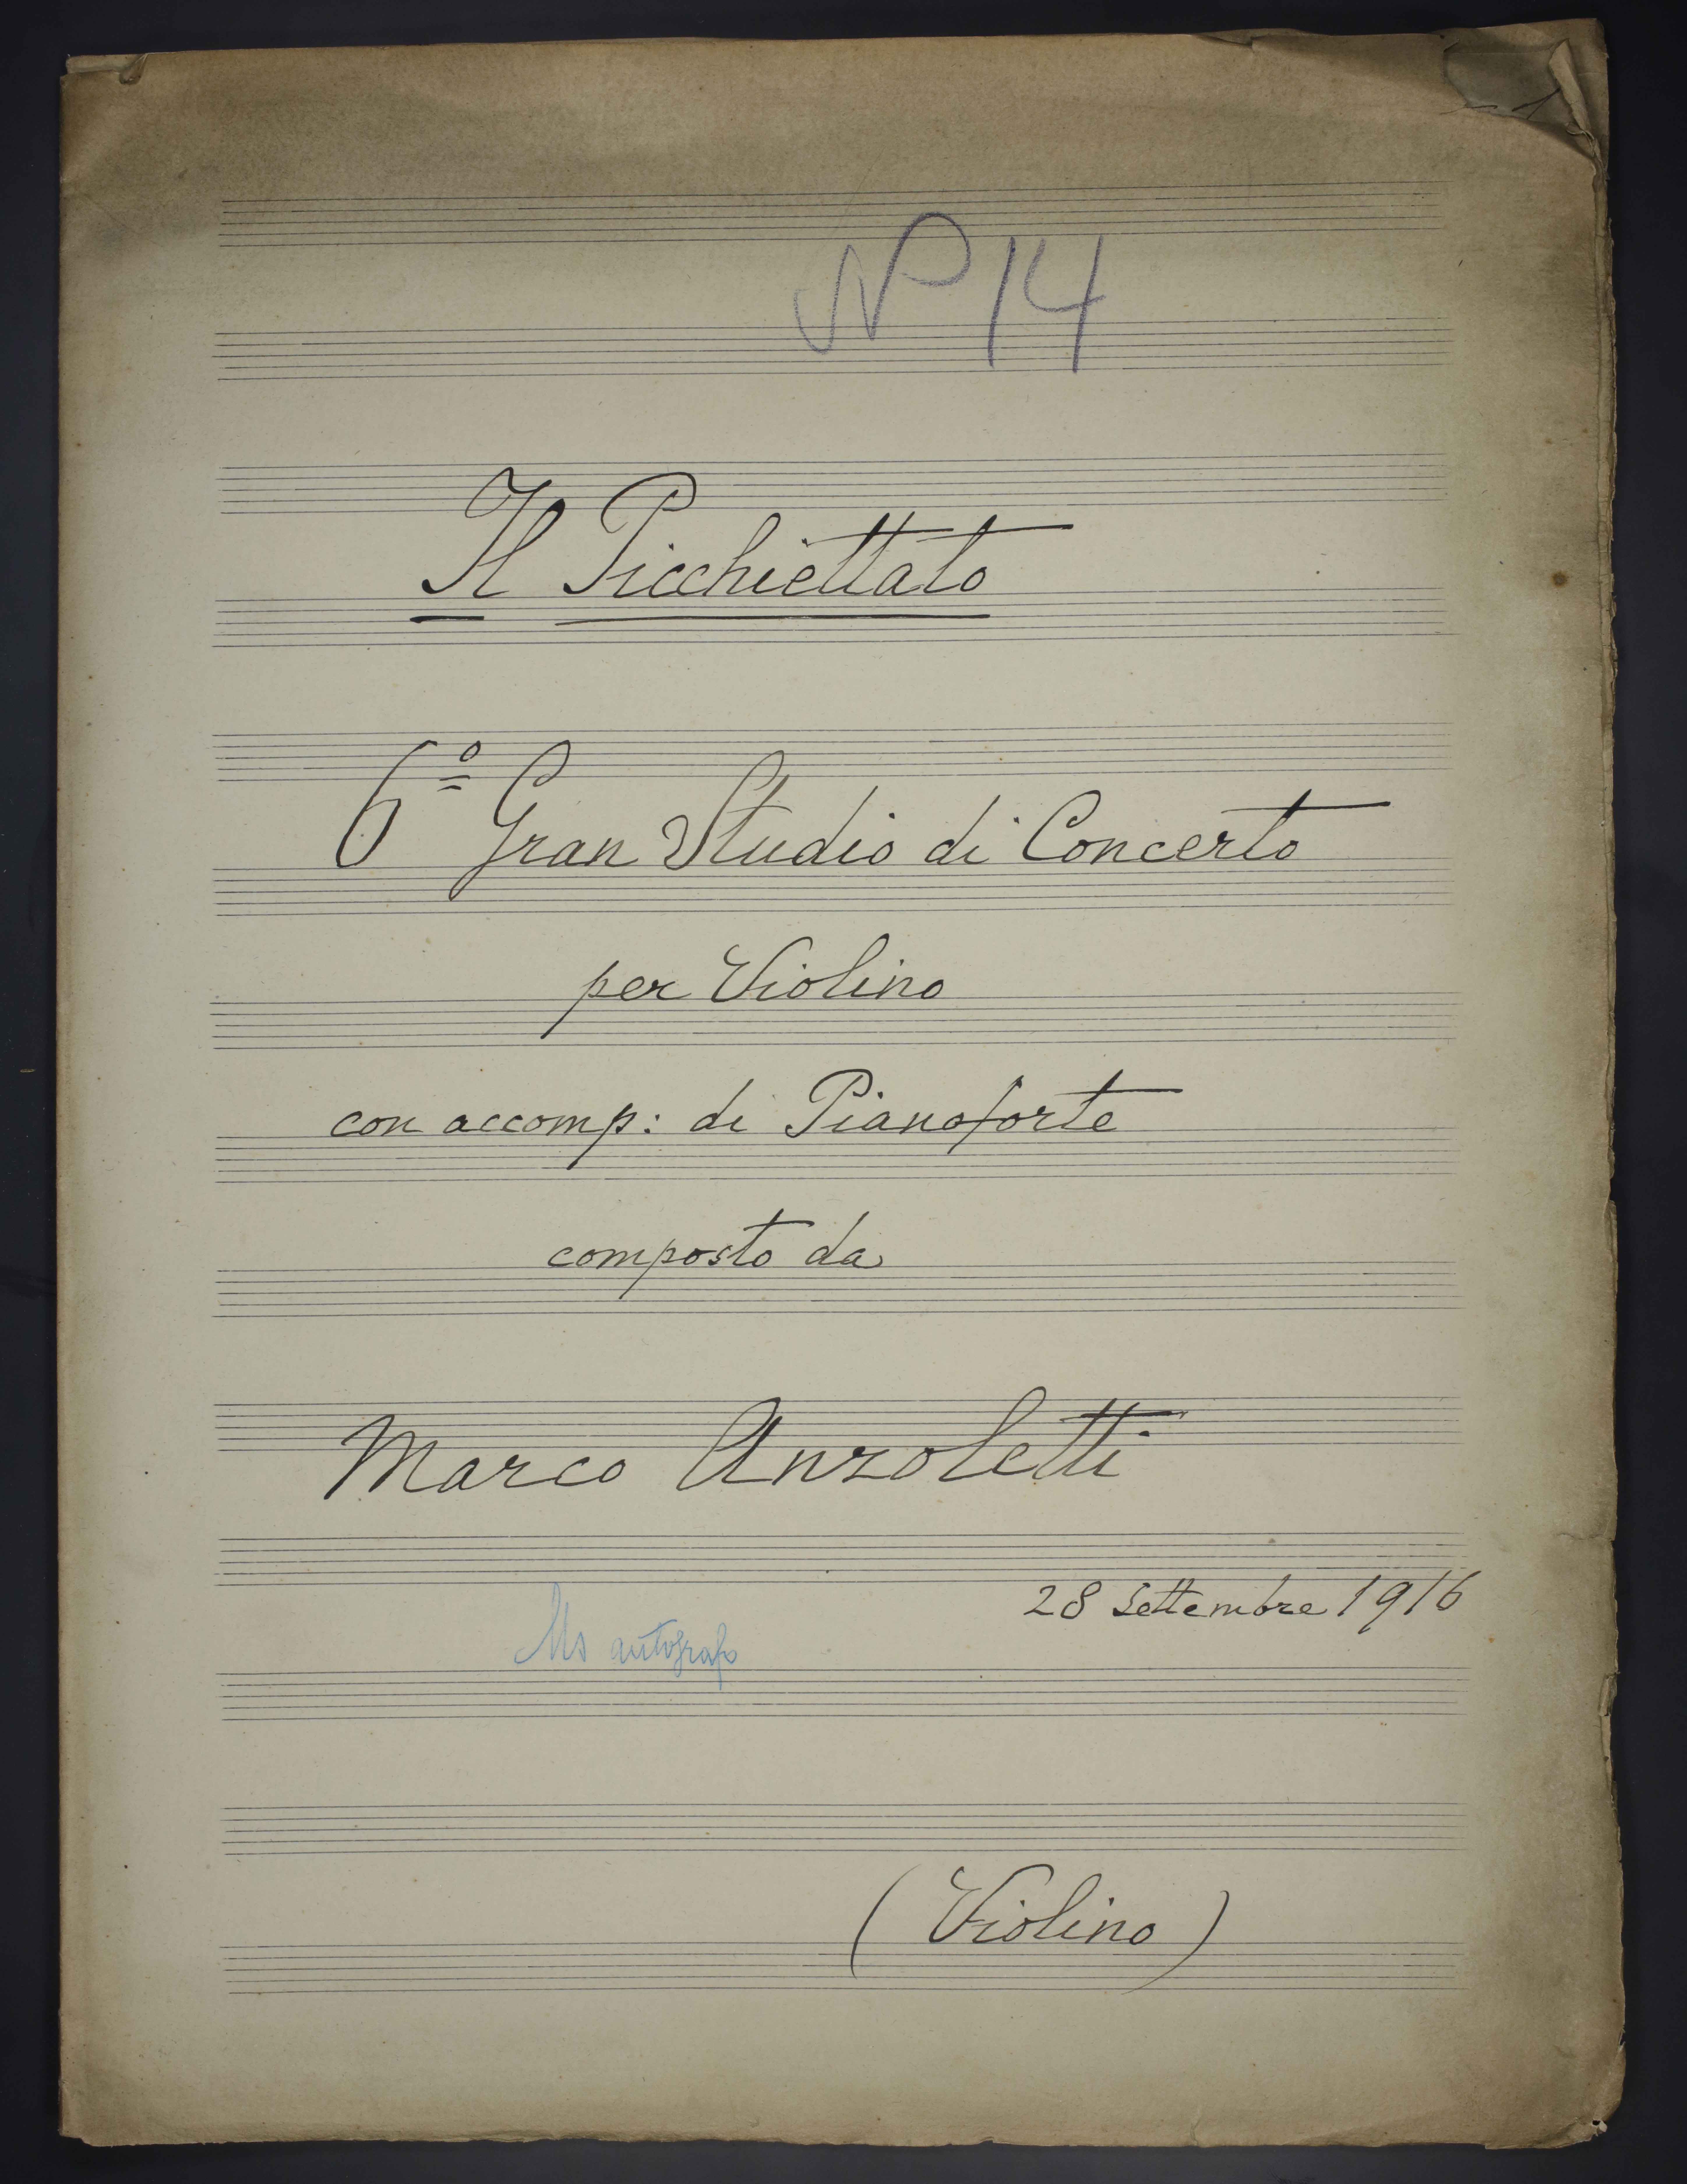 Nº 14
Il Picchiettato
6º Gran Studio di Concerto
per Violino
con accomp: di Pianoforte
composto da
Marco Anzoletti
28 Settembre 1916
Ms autografo
(Violino)